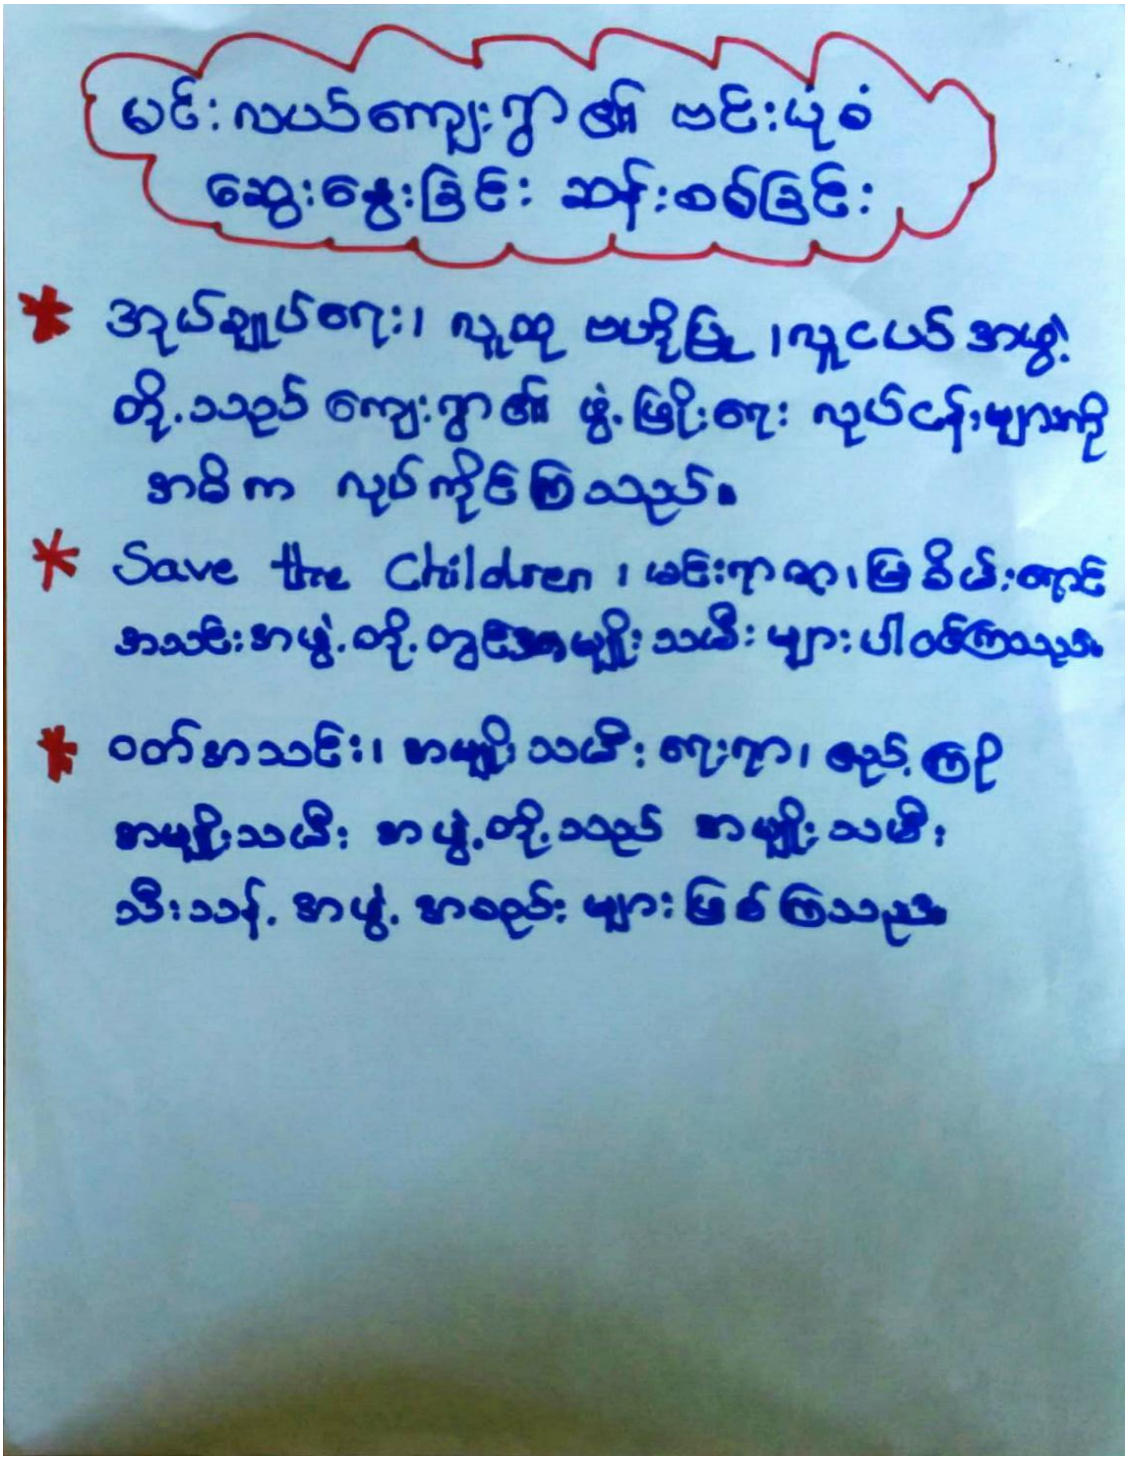 မင်းလယ်ကျေးရွာ၏ ဗင်းပုံစံ
ဆွေးနွေးခြင်း ဆန်းစစ်ခြင်း
* အုပ်ချုပ်ရေး၊ လူထု ဗဟိုပြု ၊လူငယ် အဖွဲ့
တို့သည် ကျေးရွာ၏ ဖွံ့ဖြိုးရေး လုပ်ငန်းများကို
အဓိက လုပ်ကိုင်ကြသည်။
* Save the Children ၊ မင်းရာဇာ၊ မြစိမ်းရောင်
အသင်းအဖွဲ့တို့တွင်အမျိုးသမီးများပါဝင်ကြသည်။
* ဝတ်အသင်း၊ အမျိုးသမီးရေးရာ၊ ရည်ကြဉ်
အမျိုးသမီး အဖွဲ့တို့သည် အမျိုးသမီး
သီးသန့် အဖွဲ့အစည်းများဖြစ်ကြသည်။